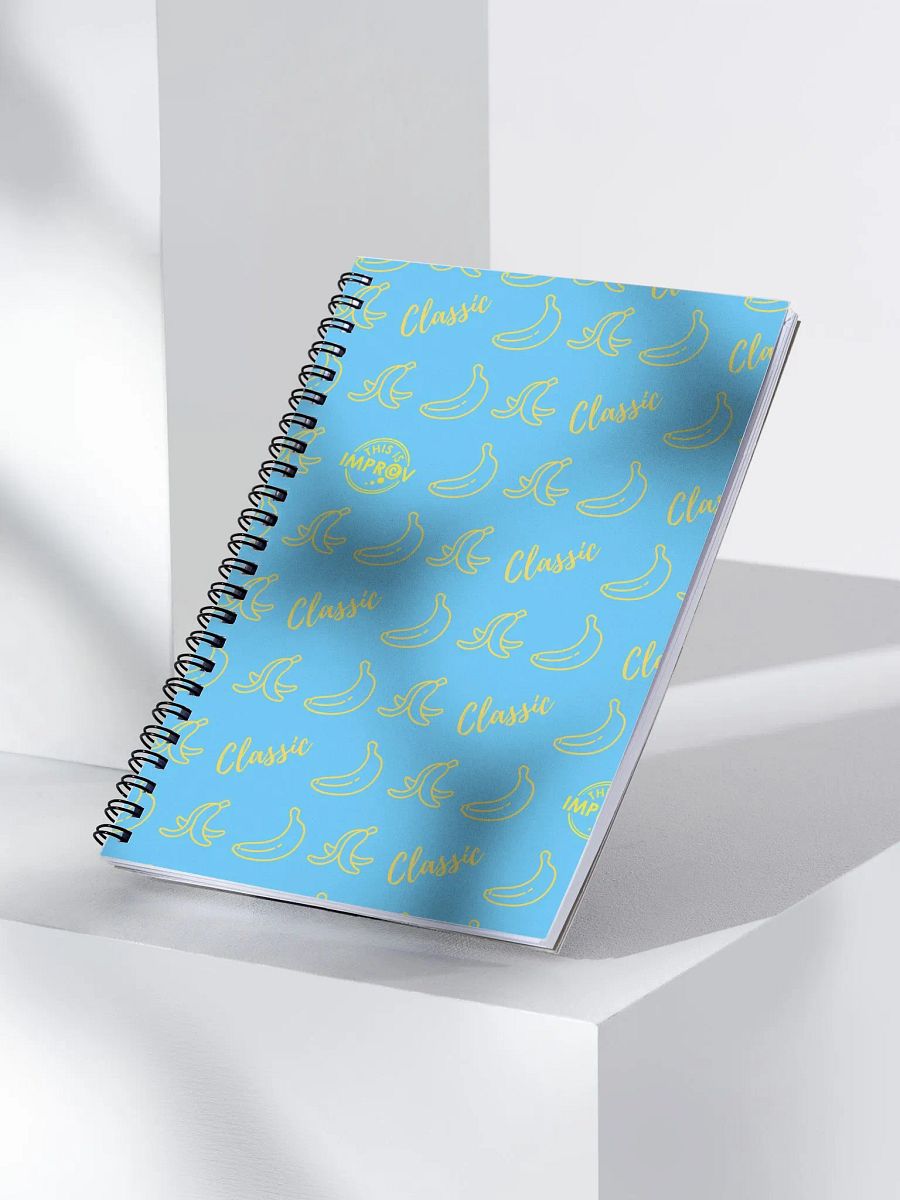 Classic
Cla
Classic
THIS IS
IMPR@V
Cla
Classic
Classic
Cl
Classic
Classic
THI
IMPR
Classic